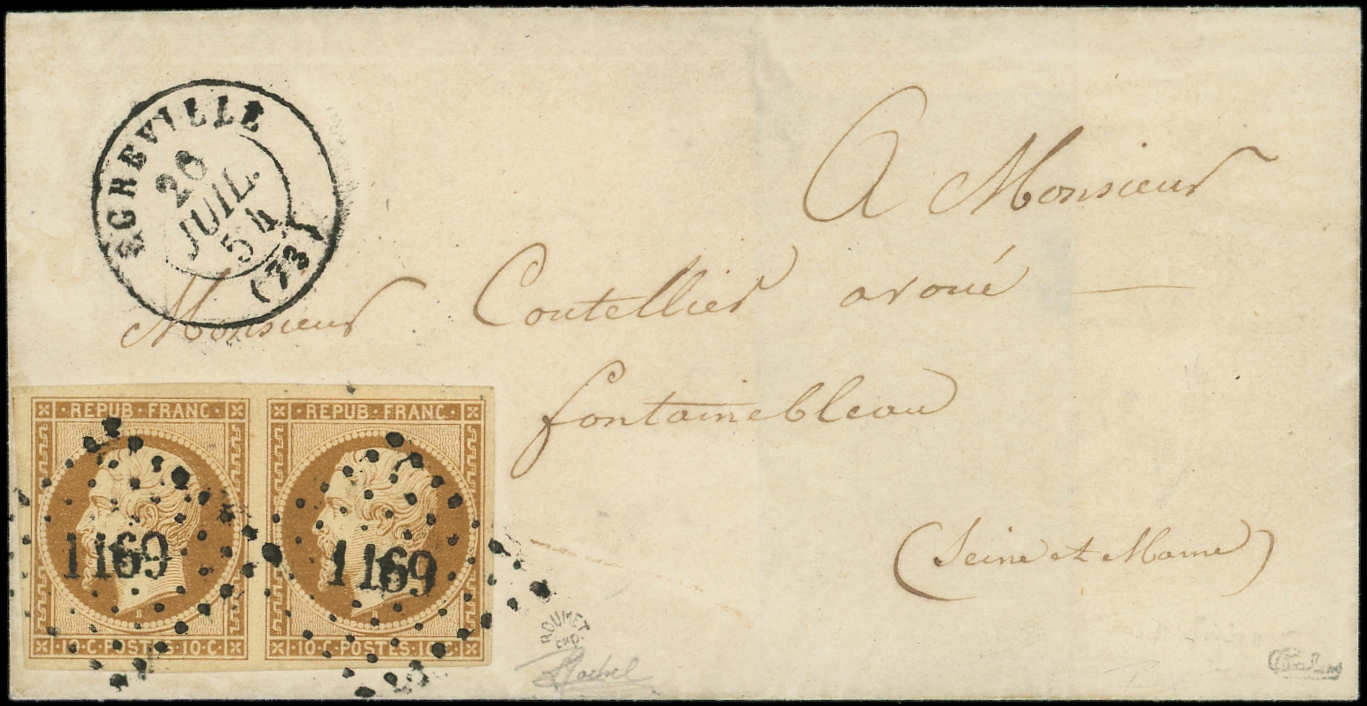 EGREVILLE
26
JUIL.
54
(73)
A Monsieur
Monsieur Coutellier avoué
fontainebleau
(Seine et Marne)
REPUB·FRANC· REPUB·FRANC·
1169 1169
10·C·POSTES·10·C· 10·C·POSTES·10·C·
ROUMET
EXP.